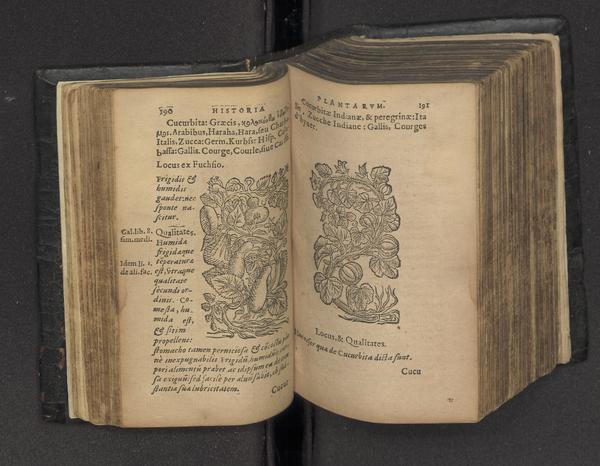 190
HISTORIA
Cucurbita: Græcis, κολοκύνθα
μοι. Arabibus, Haraha, Hara, seu
Italis. Zucca: Germ. Kurbsz: Hisp.
bassa: Gallis. Courge, Courle, siue
Locus ex Fuchsio.
Frigidis &
humidis
gaudet: nec
sponte na-
scitur.
Gal. lib. 8.
sim. medi.
Qualitates.
Humida
frigidaque
Idem li. 2.
de ali. fac.
tēperatura
est, vtraque
qualitate
secundi or-
dinis. Co-
mesta, hu-
mida est,
& sitim
propellens:
stomacho tamen perniciosa &
nè inexpugnabilis Frigidū, humidū
pori alimentū præbet ac idipsum
se exiguū: sed facile per aluū subit, ob
stantia sua lubricitatem.
Cucur
PLANTARVM.
191
Cucurbitæ Indianæ, & peregrinæ: Ita
lis, Zucche Indiane: Gallis, Courges
d'hyuer.
Locus, & Qualitates.
qua de Cucurbita dicta sunt.
Cucu